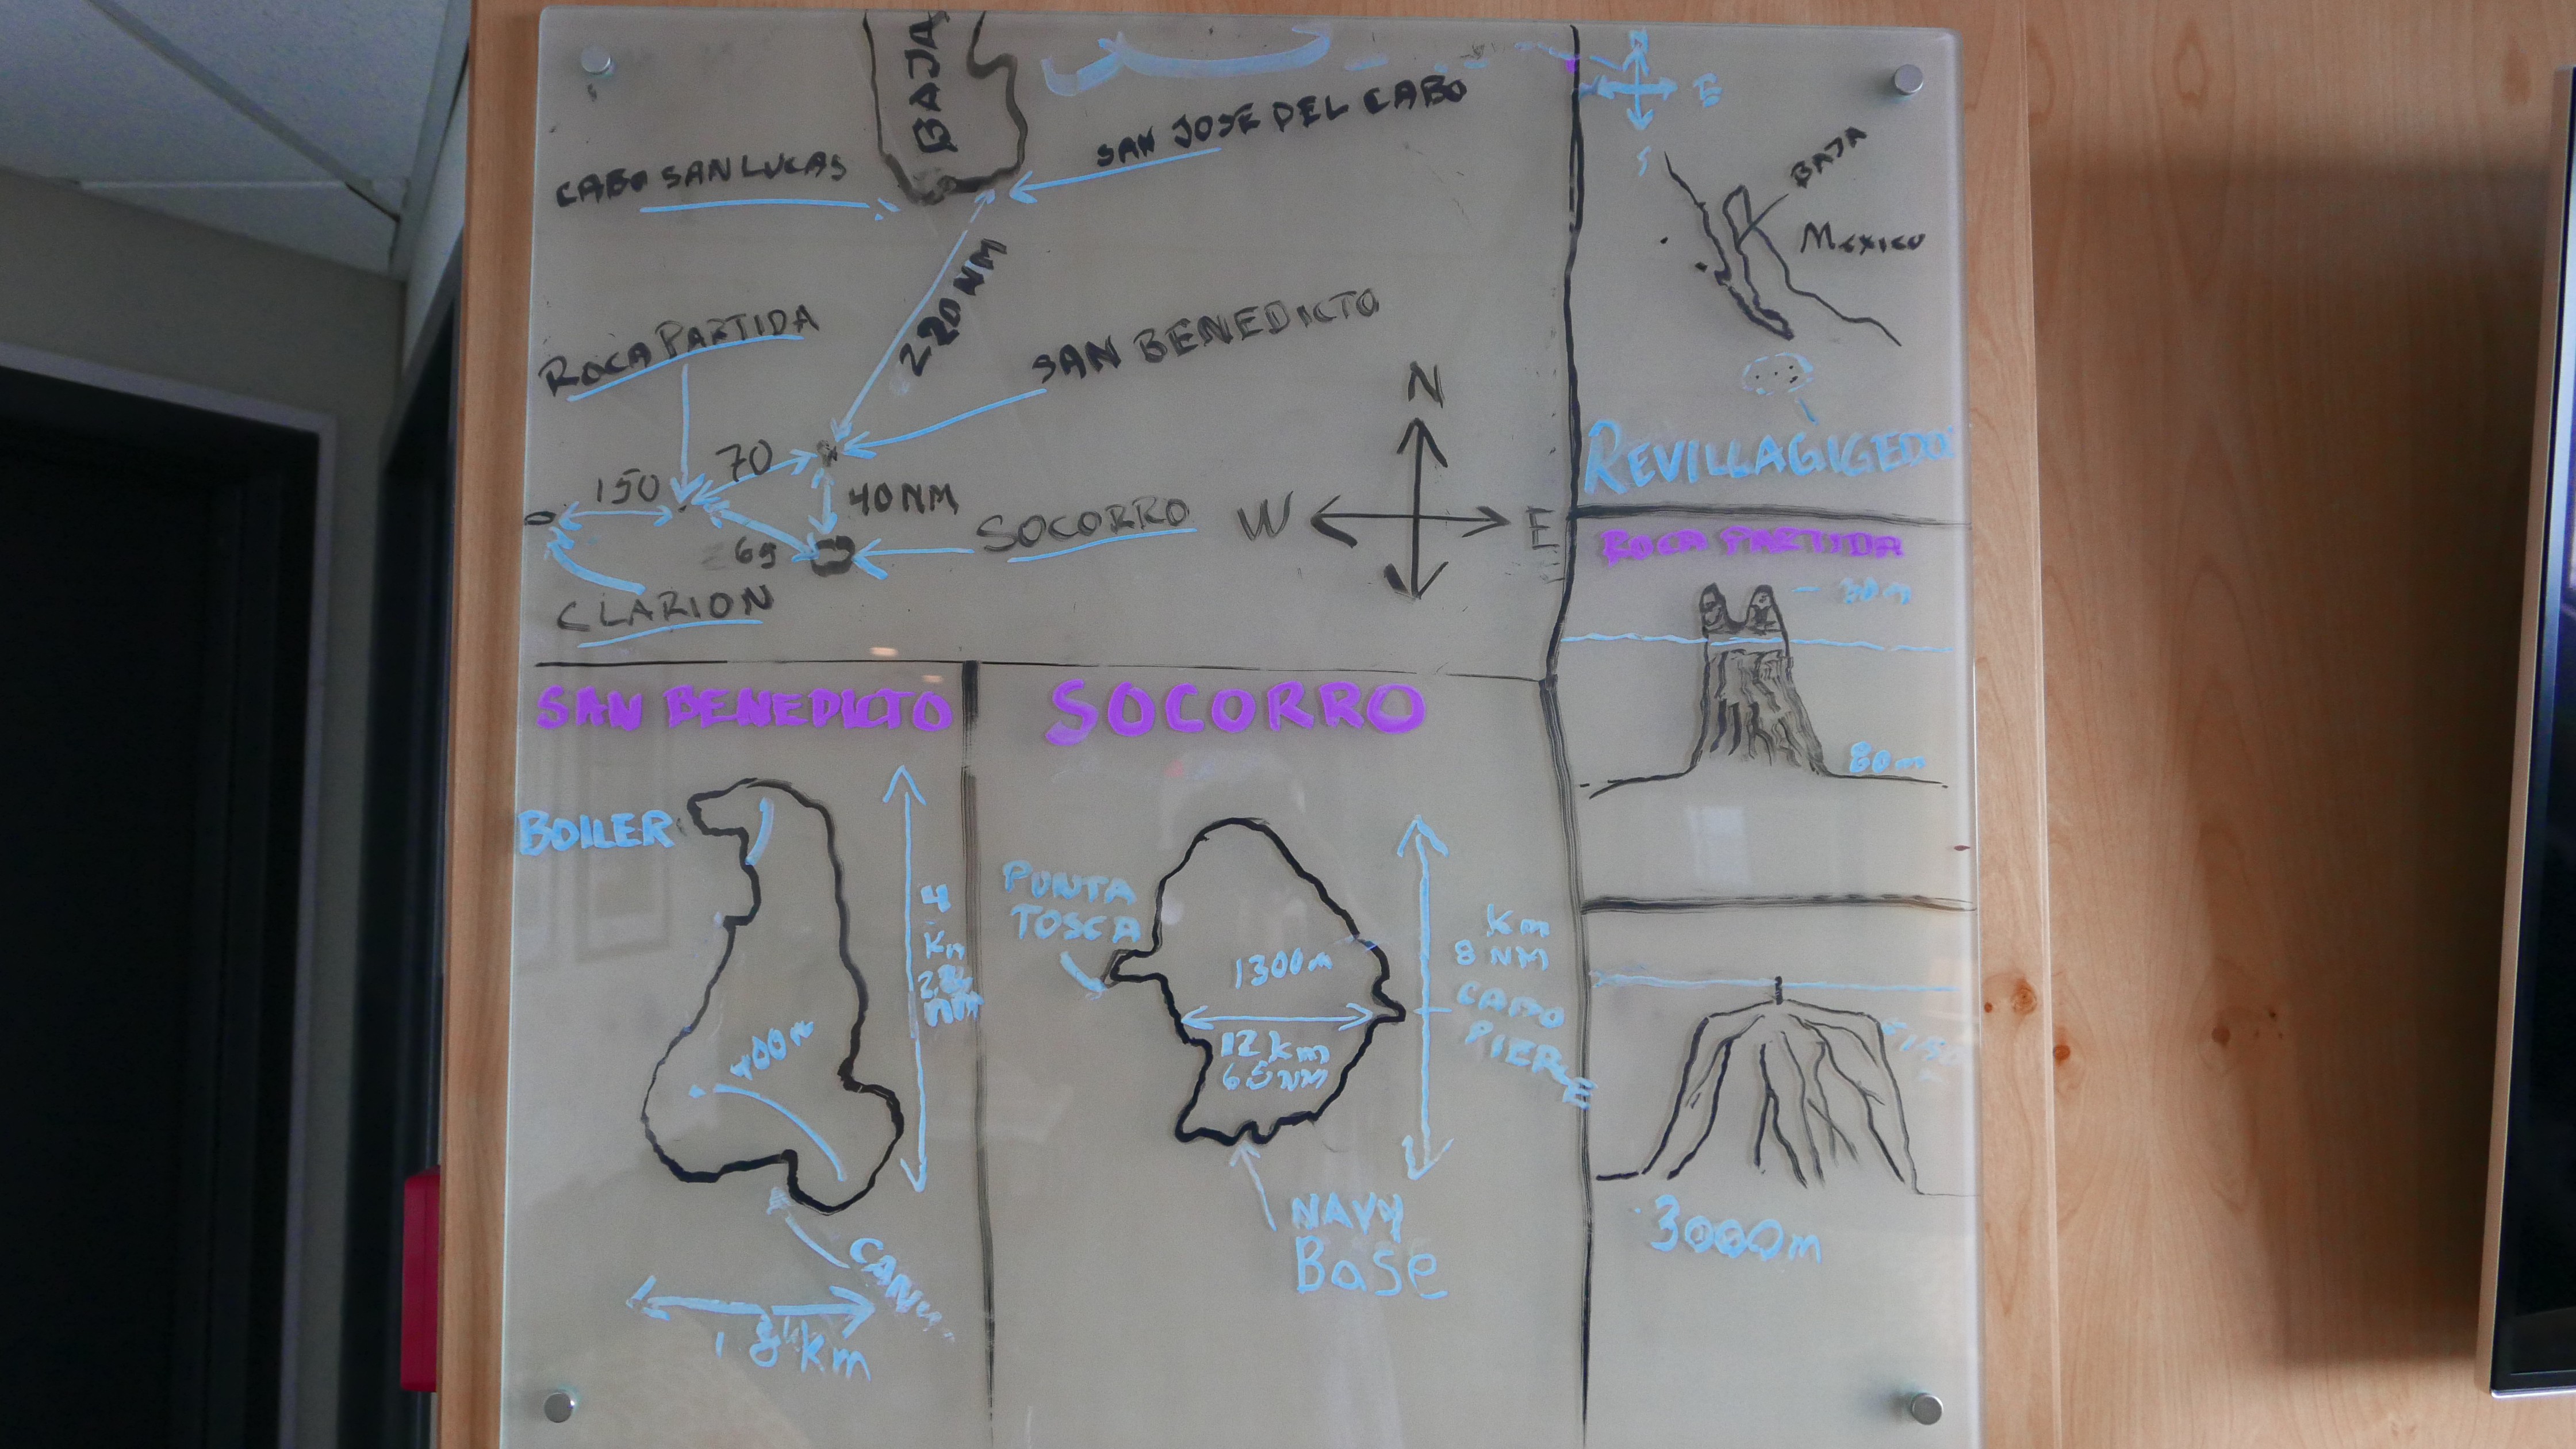 BAJA
SAN JOSE DEL CABO
CABO SAN LUCAS
220 NM
ROCA PARTIDA
SAN BENEDICTO
70
150
40 NM
69
SOCORRO
CLARION
N
W
E
E
S
BAJA
MEXICO
REVILLAGIGEDO
ROCA PARTIDA
80m
3000m
SAN BENEDICTO
BOILER
4
Km
NM
400m
1.8 km
SOCORRO
PUNTA
TOSCA
1300m
12 km
6.5 NM
Km
8 NM
CABO
PIERCE
NAVY
Base